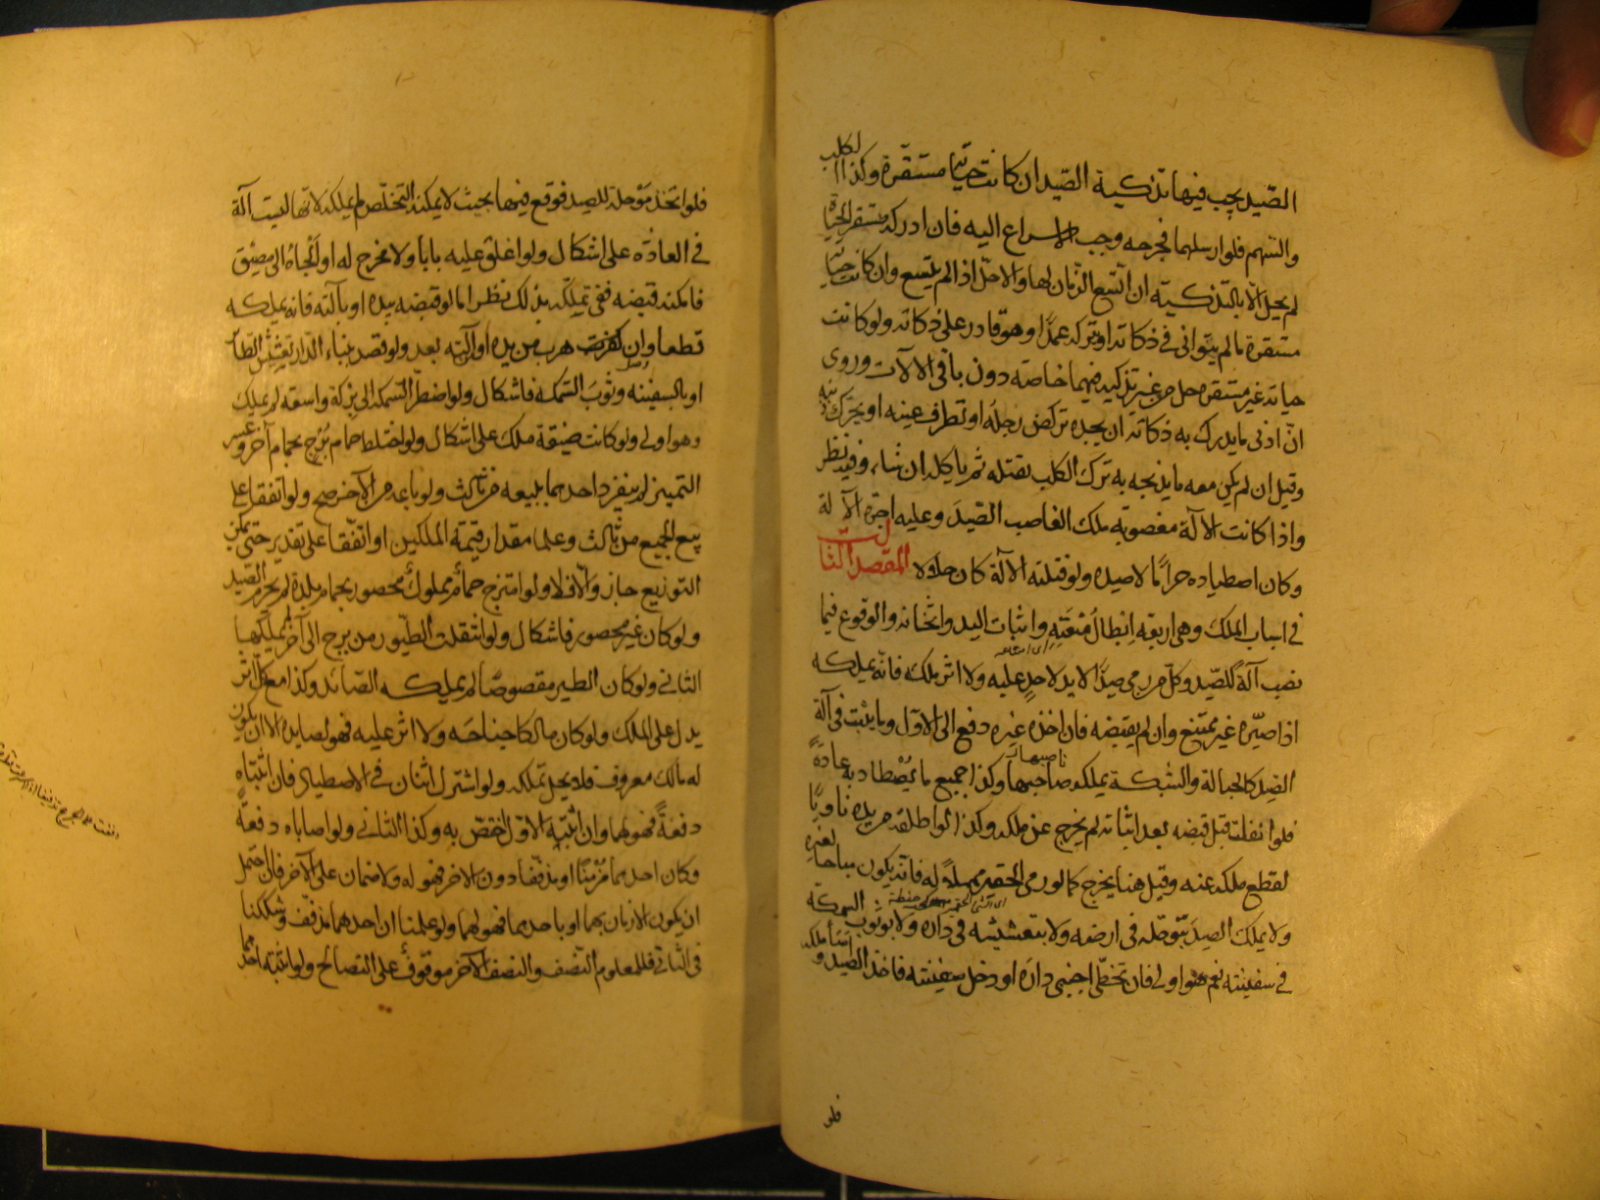 الصّيد يجب فيها تذكية الصّيد ان كانت حياتها مستقرة وكذا الكلب
والسّهم فلو ارسلهما فجرحه وجب الاسراع اليه فان ادركه مستقر الحياة
لم يحل الّا بالتذكية ان اتّسع الزّمان لها والا حلّ اذا لم يتّسع وان كانت حياته
مستقرة ما لم يتوانى في ذكاته او يتركه عمدًا وهو قادر على ذكاته ولو كانت
حياته غير مستقرة حل من غير تذكية فيهما خاصة دون باقي الالات وروى
انّ ادنى ما يدرك به ذكاته ان يجده تركض رجله او تطرف عينه او يتحرّك ذنبه
وقيل ان لم يكن معه ما يذبحه به ترك الكلب يقتله ثم ياكله ان شاء وفيه نظر
واذا كانت الالة مغصوبة ملك الغاصب الصّيدَ وعليه اجرة الآلة
وكان اصطياده حرامًا لا صيده ولو قتلته الآلة كان حلالا المقصد الثالث
في اسباب الملك وهي اربعة اِبطالُ مَنَعَتِهِ واثبات اليد واثخانه والوقوع فيما
نصب آلةً للصّيد وكلّ من رمى صيدًا لا يد لاحدٍ عليه ولا اثر ملك فانّه يملكه
اذا صيّره غير ممتنع وان لم يقبضه فان اخذه غيره دفع الى الاوّل وما يثبت في آلة
الصّيد كالحبالة والشّبكة يملكه صاحبها ناصبها وكذا جميع ما يُصْطاد به عادةً
فلو انفلت قبل قبضه بعد اثباته لم يخرج عن ملكه وكذا لو اطلقه من يده ناويًا
لقطع ملكه عنه وقيل هنا يخرج كما لو رمى الحقير مهملاً له فانّه يكون مباحا لغيره
ولا يملك الصيدَ بتوحّله في ارضه ولا بتعشيشه في داره ولا بوثوب السمكة
في سفينته نعم هو اولى فان تخطّى اجنبي دارَه او دخل سفينته فاخذ الصّيد
فلو
فلو اتّخذ مَوْحلة للصيد فوقع فيها بحيث لا يمكنه التخلّص لم يملكه لانّها ليست آلة
في العادَة على اشكال ولو اغلق عليه باباً ولا مخرج له او اَلْجَأهُ الى مضيق
فامكنه قبضه ففي تملكه بذلك نظر اما لو قبضه بيده او بآلته فانه يملكه
قطعا وان هرب من يده او آلته بعد ولو قصد ببناء الدّار تعشيش الطّائر
او بالسفينة وثوبَ السّمكه فاشكال ولو اضطرّ السّمكة الى بركة واسعة لم يملك
وهو اولى ولو كانت ضيّقة ملك على اشكال ولو اختلط حمام بُرْج بحمام آخر وعسر
التمييز لم ينفرد احدهما ببيعه من ثالث ولو باعه من الآخر صح ولو اتفقا على
بيع الجميع من ثالث وعلما مقدار قيمة الملكين او اتّفقا على تقدير حتى يمكن
التوزيع جاز والّا فلا ولو امتزج حمام مملوك محصور بحمام بلدة لم يحرم الصّيد
ولو كان غير محصور فاشكال ولو انتقلت الطّيور من برج الى آخر لم يملكها
الثاني ولو كان الطير مقصوصًا لم يملكه الصّائد وكذا مع كلّ اثر
يدل على الملك ولو كان مالكا جناحَه ولا اثر عليه فهو لصايده الا ان يكون
له مالك معروف فلا يحل تملكه ولو اشترك اثنان في الاصطياد فان اثبتاه
دفعةً فهو لهما وان اثبته الاول اختصّ به وكذا الثاني ولو اصاباه دفعةً
وكان احدهما مُزْمِنًا او مذففا دون الاخر فهو له ولا ضمان على الآخر فان احتمل
ان يكون الازمان بهما او باحدهما فهو لهما ولو علمنا ان احدهما مذفّف وشككنا
في الثاني فللمعلوم النّصف والنصف الآخر موقوف على التصالح ولو اثبته احدهما